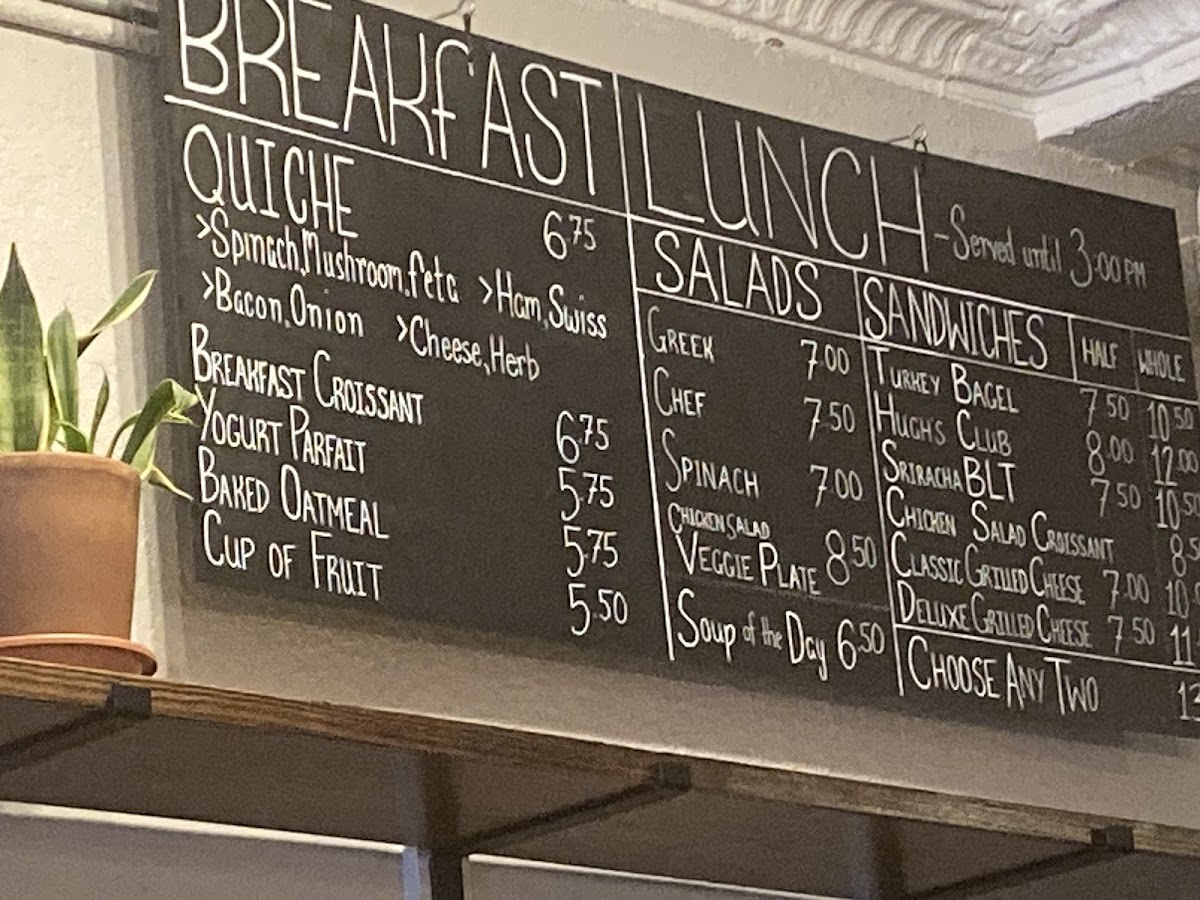 BREAKFAST
QUICHE 6.75
>Spinach,Mushroom,feta >Ham,Swiss
>Bacon,Onion >Cheese,Herb
BREAKFAST CROISSANT 6.75
YOGURT PARFAIT 5.75
BAKED OATMEAL 5.75
CUP OF FRUIT 5.50
LUNCH -Served until 3:00 PM
SALADS
GREEK 7.00
CHEF 7.50
SPINACH 7.00
CHICKEN SALAD
VEGGIE PLATE 8.50
Soup of the Day 6.50
SANDWICHES HALF WHOLE
TURKEY BAGEL 7.50 10.50
HUGH'S CLUB 8.00 12.00
SRIRACHA BLT 7.50 10.50
CHICKEN SALAD CROISSANT
CLASSIC GRILLED CHEESE 7.00
DELUXE GRILLED CHEESE 7.50
CHOOSE ANY TWO